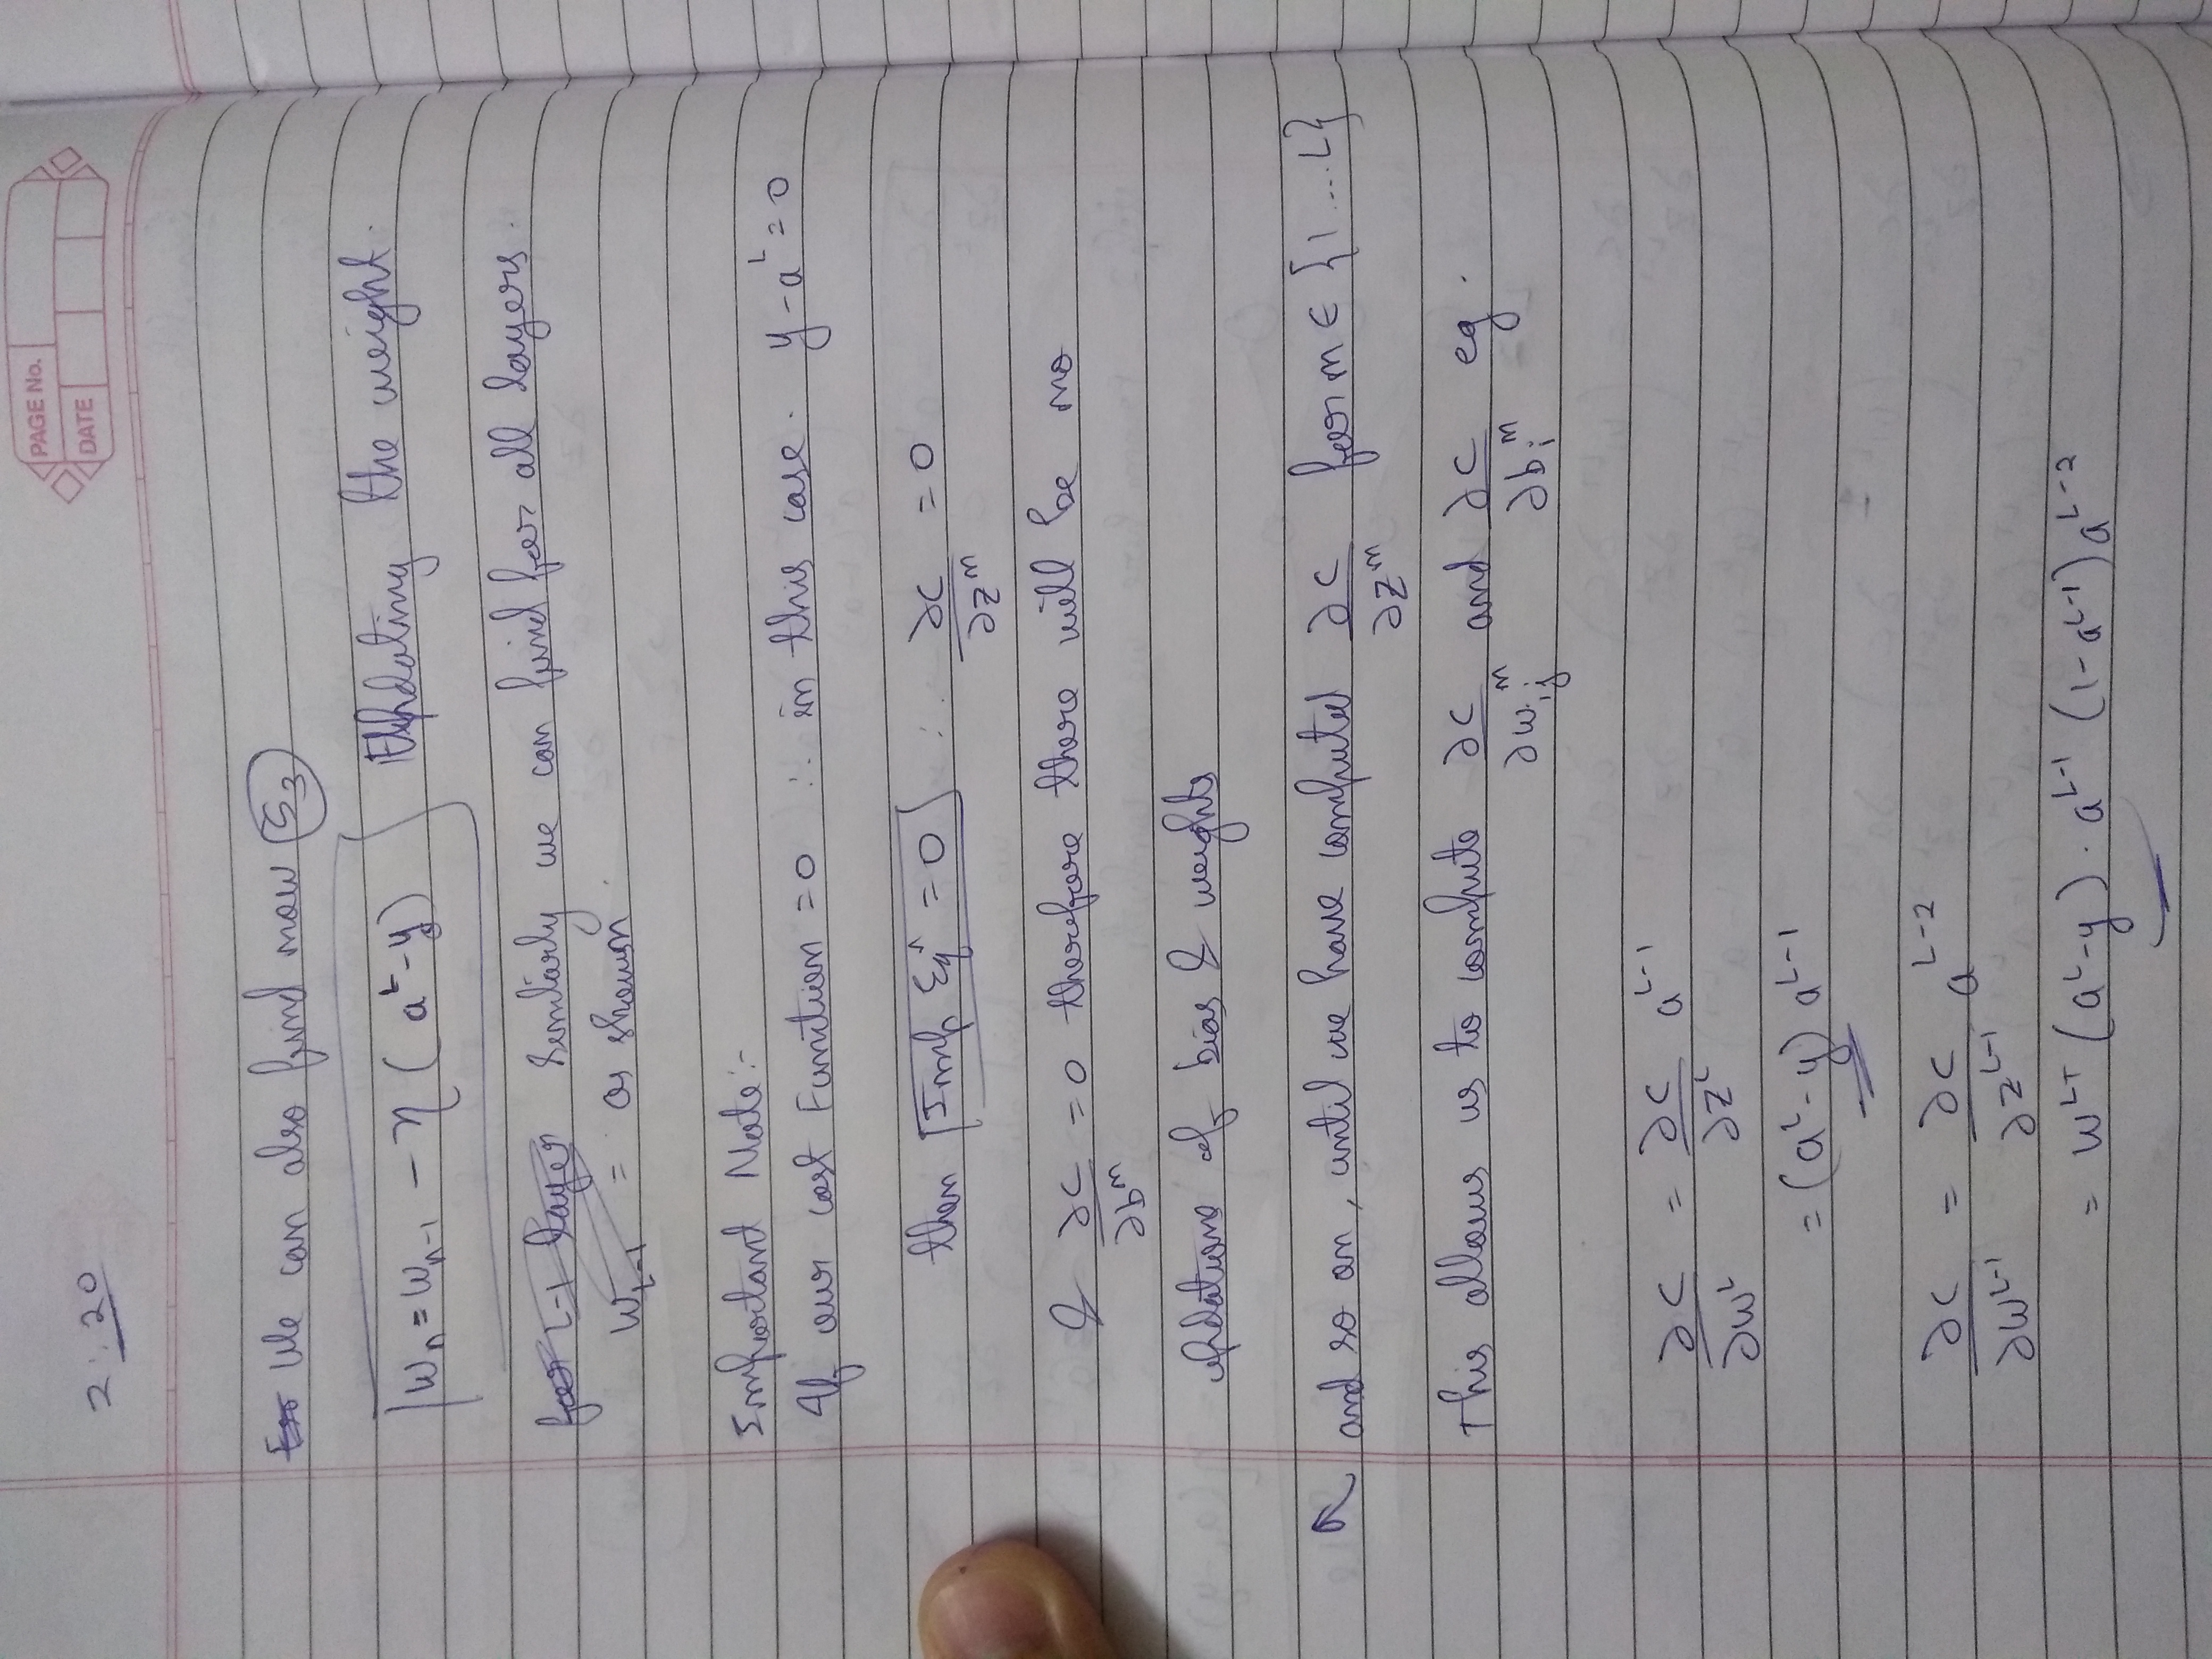 PAGE No.
DATE
2:20
We can also find now S3
Wn = Wn-1 - η (a^L - y) Updating the weight.
for L-1 layer Similarly we can find for all layers.
W_L-1 = as shown.
Important Note:-
If our cost Function = 0 ∴ in this case. y - a^L = 0
then Imp Eq^n = 0 ∴ ∂C/∂z^m = 0
& ∂C/∂b^m = 0 therefore there will be no
updations of bias & weights
and so on, until we have computed ∂C/∂z^m for m ∈ {1 .... L}
This allows us to compute ∂C/∂w_ij^m and ∂C/∂b_i^m eg.
∂C/∂w^L = ∂C/∂z^L a^L-1
= (a^L - y) a^L-1
∂C/∂w^L-1 = ∂C/∂z^L-1 a^L-2
= W^LT (a^L - y) . a^L-1 (1 - a^L-1) a^L-2